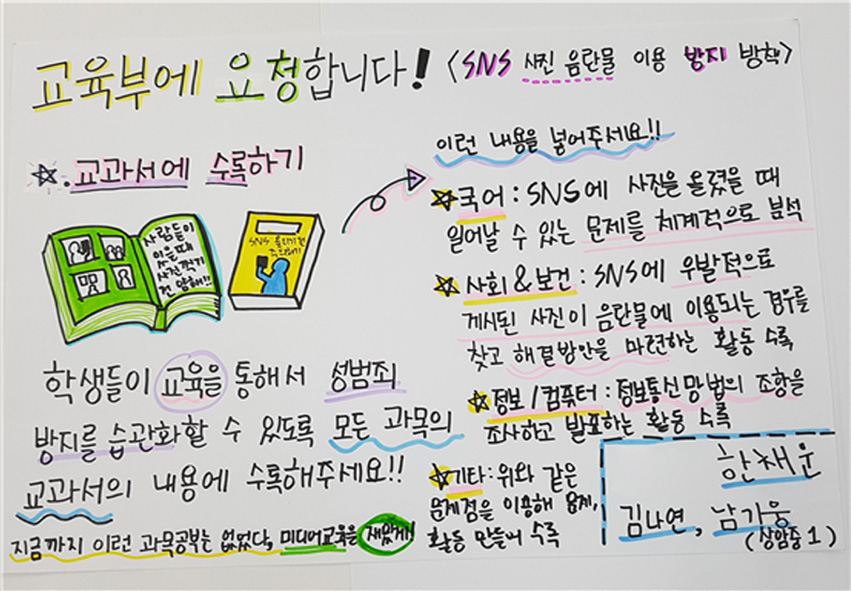 교육부에 요청합니다! <SNS 사진 음란물 이용 방지 방책>
☆.교과서에 수록하기
사람들이
있을때
사진찍기
전 양해!!
SNS 올리기 전
주의하기
학생들이 교육을 통해서 성범죄
방지를 습관화할 수 있도록 모든 과목의
교과서의 내용에 수록해주세요!!
지금까지 이런 과목공부는 없었다, 미디어교육을 재밌게!
이런 내용을 넣어주세요!!
☆국어 : SNS에 사진을 올렸을 때
일어날 수 있는 문제를 체계적으로 분석
☆사회&보건 : SNS에 우발적으로
게시된 사진이 음란물에 이용되는 경우를
찾고 해결방안을 마련하는 활동 수록
☆정보/컴퓨터 : 정보통신망법의 조항을
조사하고 발표하는 활동 수록
☆기타 : 위와 같은
문제점을 이용해 문제,
활동 만들어 수록
한채운
김나연, 남가웅
(상암중1)